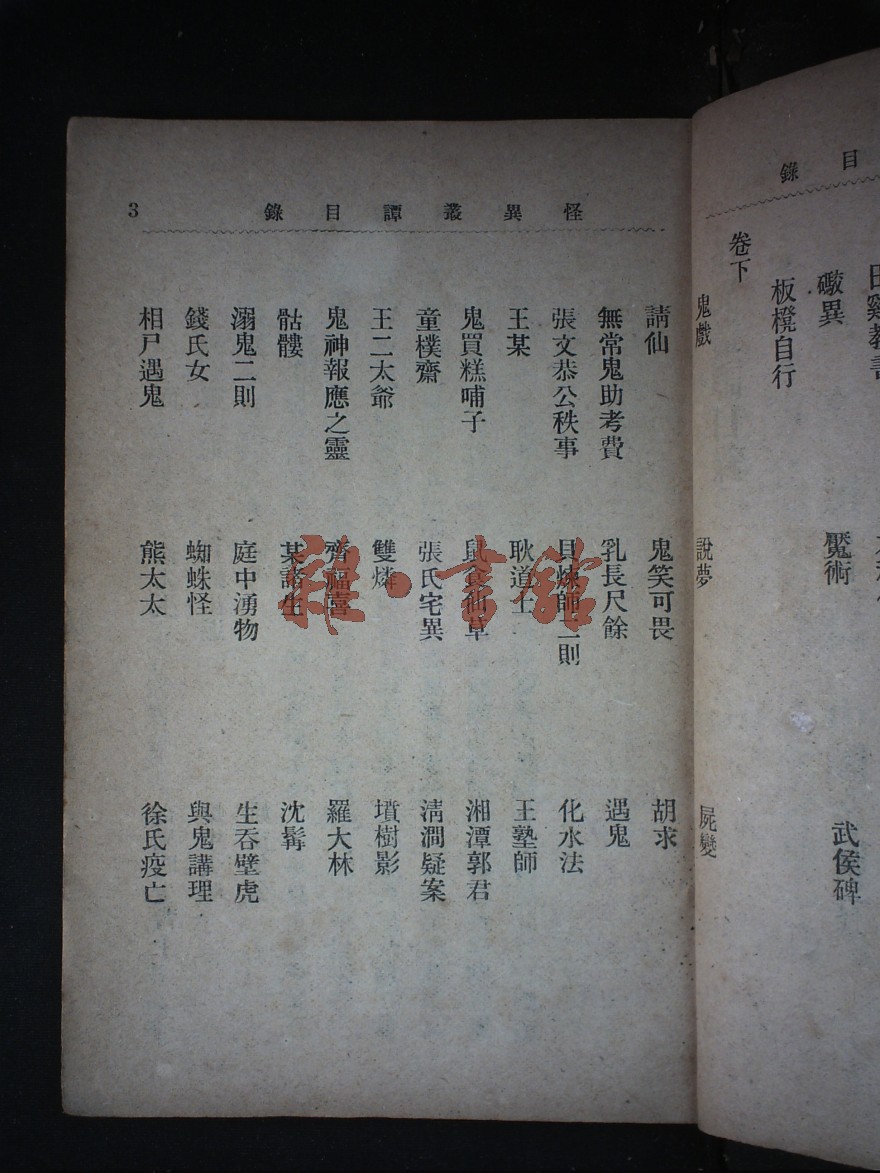 目錄
礮異 魘術 武侯碑
板櫈自行
卷下
鬼戲 說夢 屍變
怪異叢譚目錄 3
請仙 鬼笑可畏 胡求
無常鬼助考費 乳長尺餘 遇鬼
張文恭公秩事 貝煉師二則 化水法
王某 耿道士 王塾師
鬼買糕哺子 鼠食仙草 湘潭郭君
童樸齋 張氏宅異 清澗疑案
王二太爺 雙燐 墳樹影
鬼神報應之靈 齊福喜 羅大林
骷髏 某諸生 沈髯
溺鬼二則 庭中湧物 生吞壁虎
錢氏女 蜘蛛怪 與鬼講理
相尸遇鬼 熊太太 徐氏疫亡
雜·書館